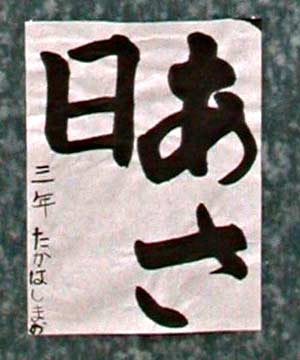 あさ
日
三年 たかはしまお